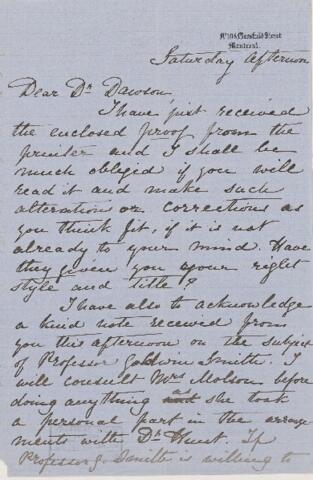 Mansfield Street
Montreal.
Saturday Afternoon
Dear Dr Dawson,
I have just received
the enclosed proof from the
printer and I shall be
much obliged if you will
read it and make such
alteration or corrections as
you think fit, if it is not
already to your mind. Have
they given you your right
style and title?
I have also to acknowledge
a kind note received from
you this afternoon on the subject
of Professor Goldwin Smith. I
will consult Mrs Molson before
doing anything as she took
a personal part in the arrange
ments with Dr Hunt. If
Professor G. Smith is willing to